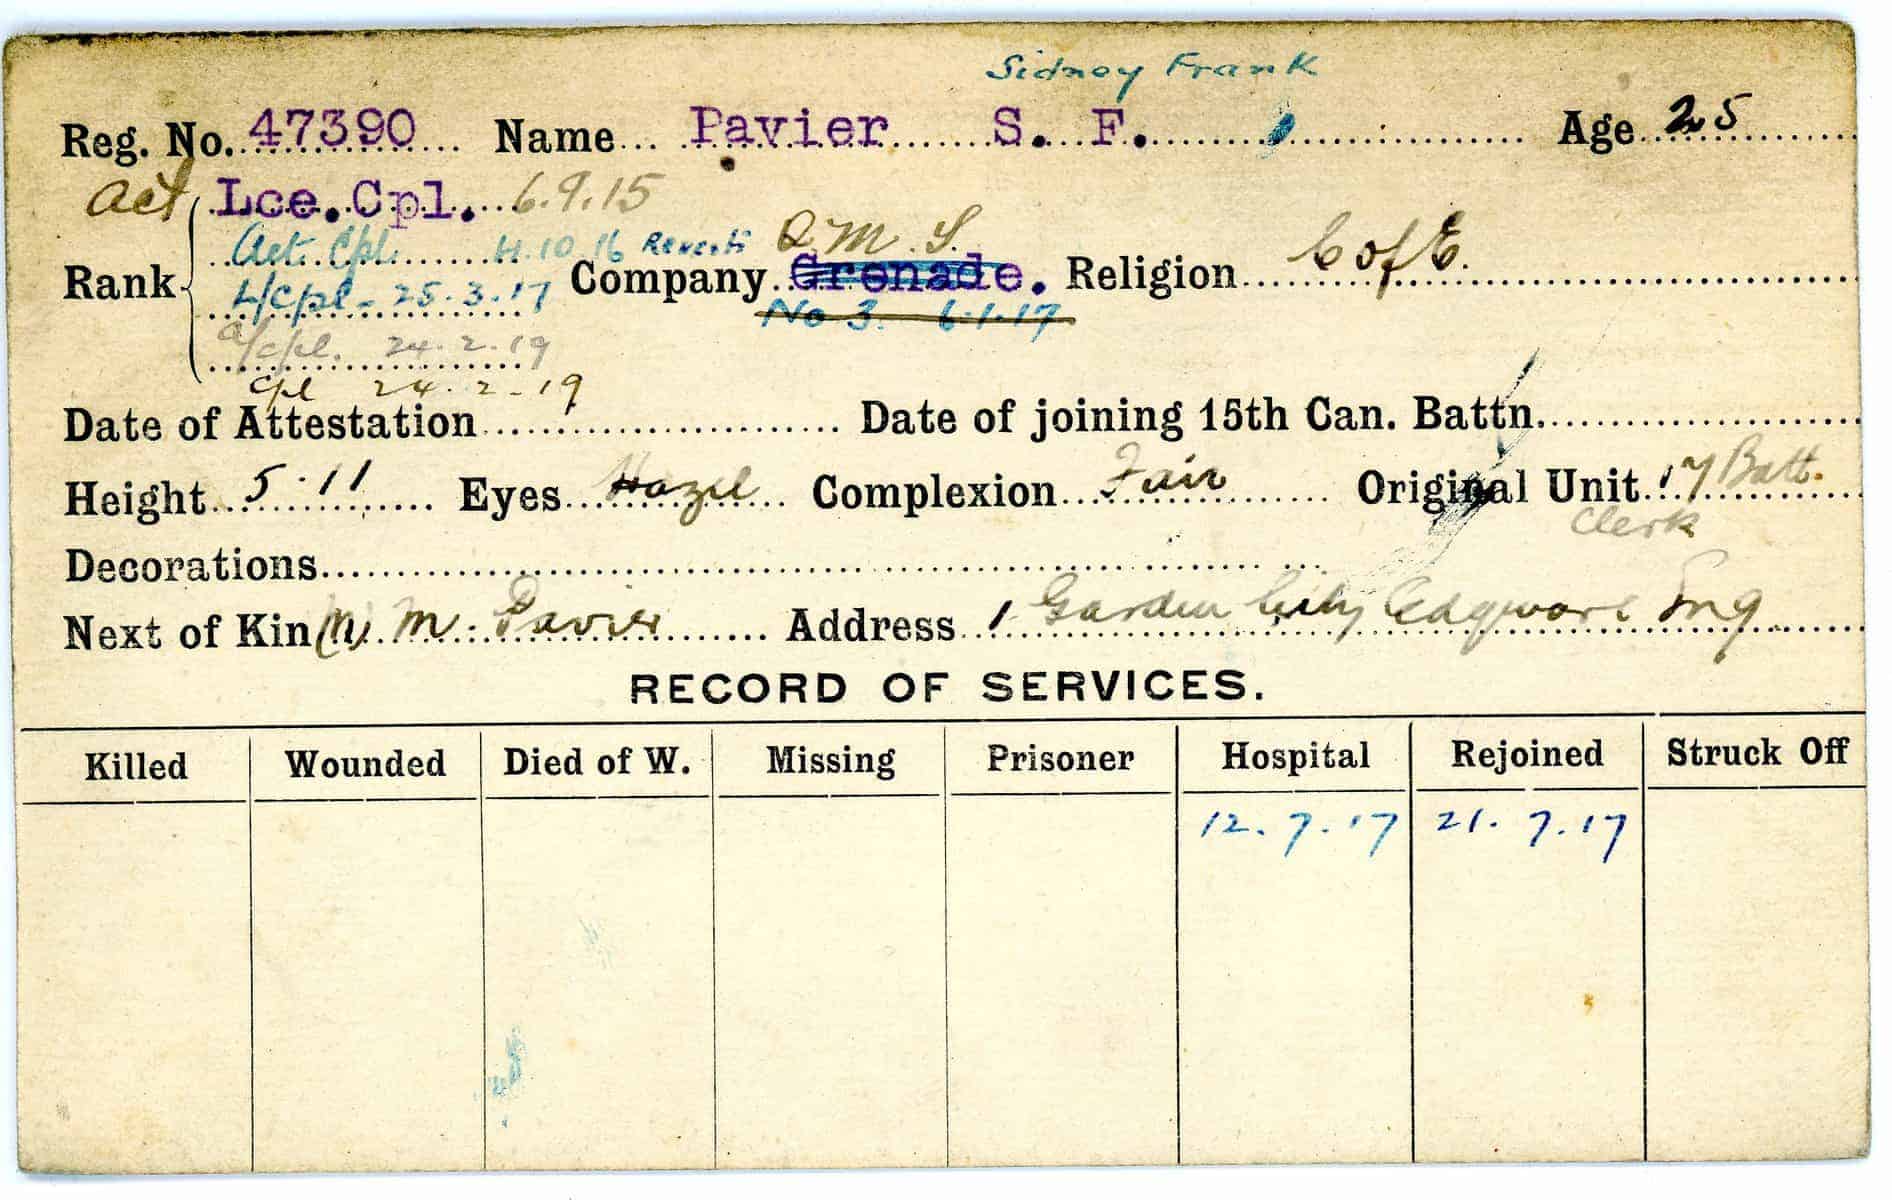 Sidney Frank
Reg. No. 47390 Name Pavier S. F. Age 25
Act Lce. Cpl. 6.9.15
Act. Cpl. 4.10.16 Reverts Q.M.S.
Rank Company Grenade. Religion C of E.
L/Cpl - 25.3.17 No 3. 6.1.17
a/cpl. 24.2.19
Cpl 24.2-19
Date of Attestation Date of joining 15th Can. Battn.
Height 5.11 Eyes Hazel Complexion Fair Original Unit 17 Batt.
Clerk
Decorations
Next of Kin (M) M. Pavier Address 1 Garden City Edgware Eng
RECORD OF SERVICES.
Killed Wounded Died of W. Missing Prisoner Hospital Rejoined Struck Off
12.7.17 21.7.17